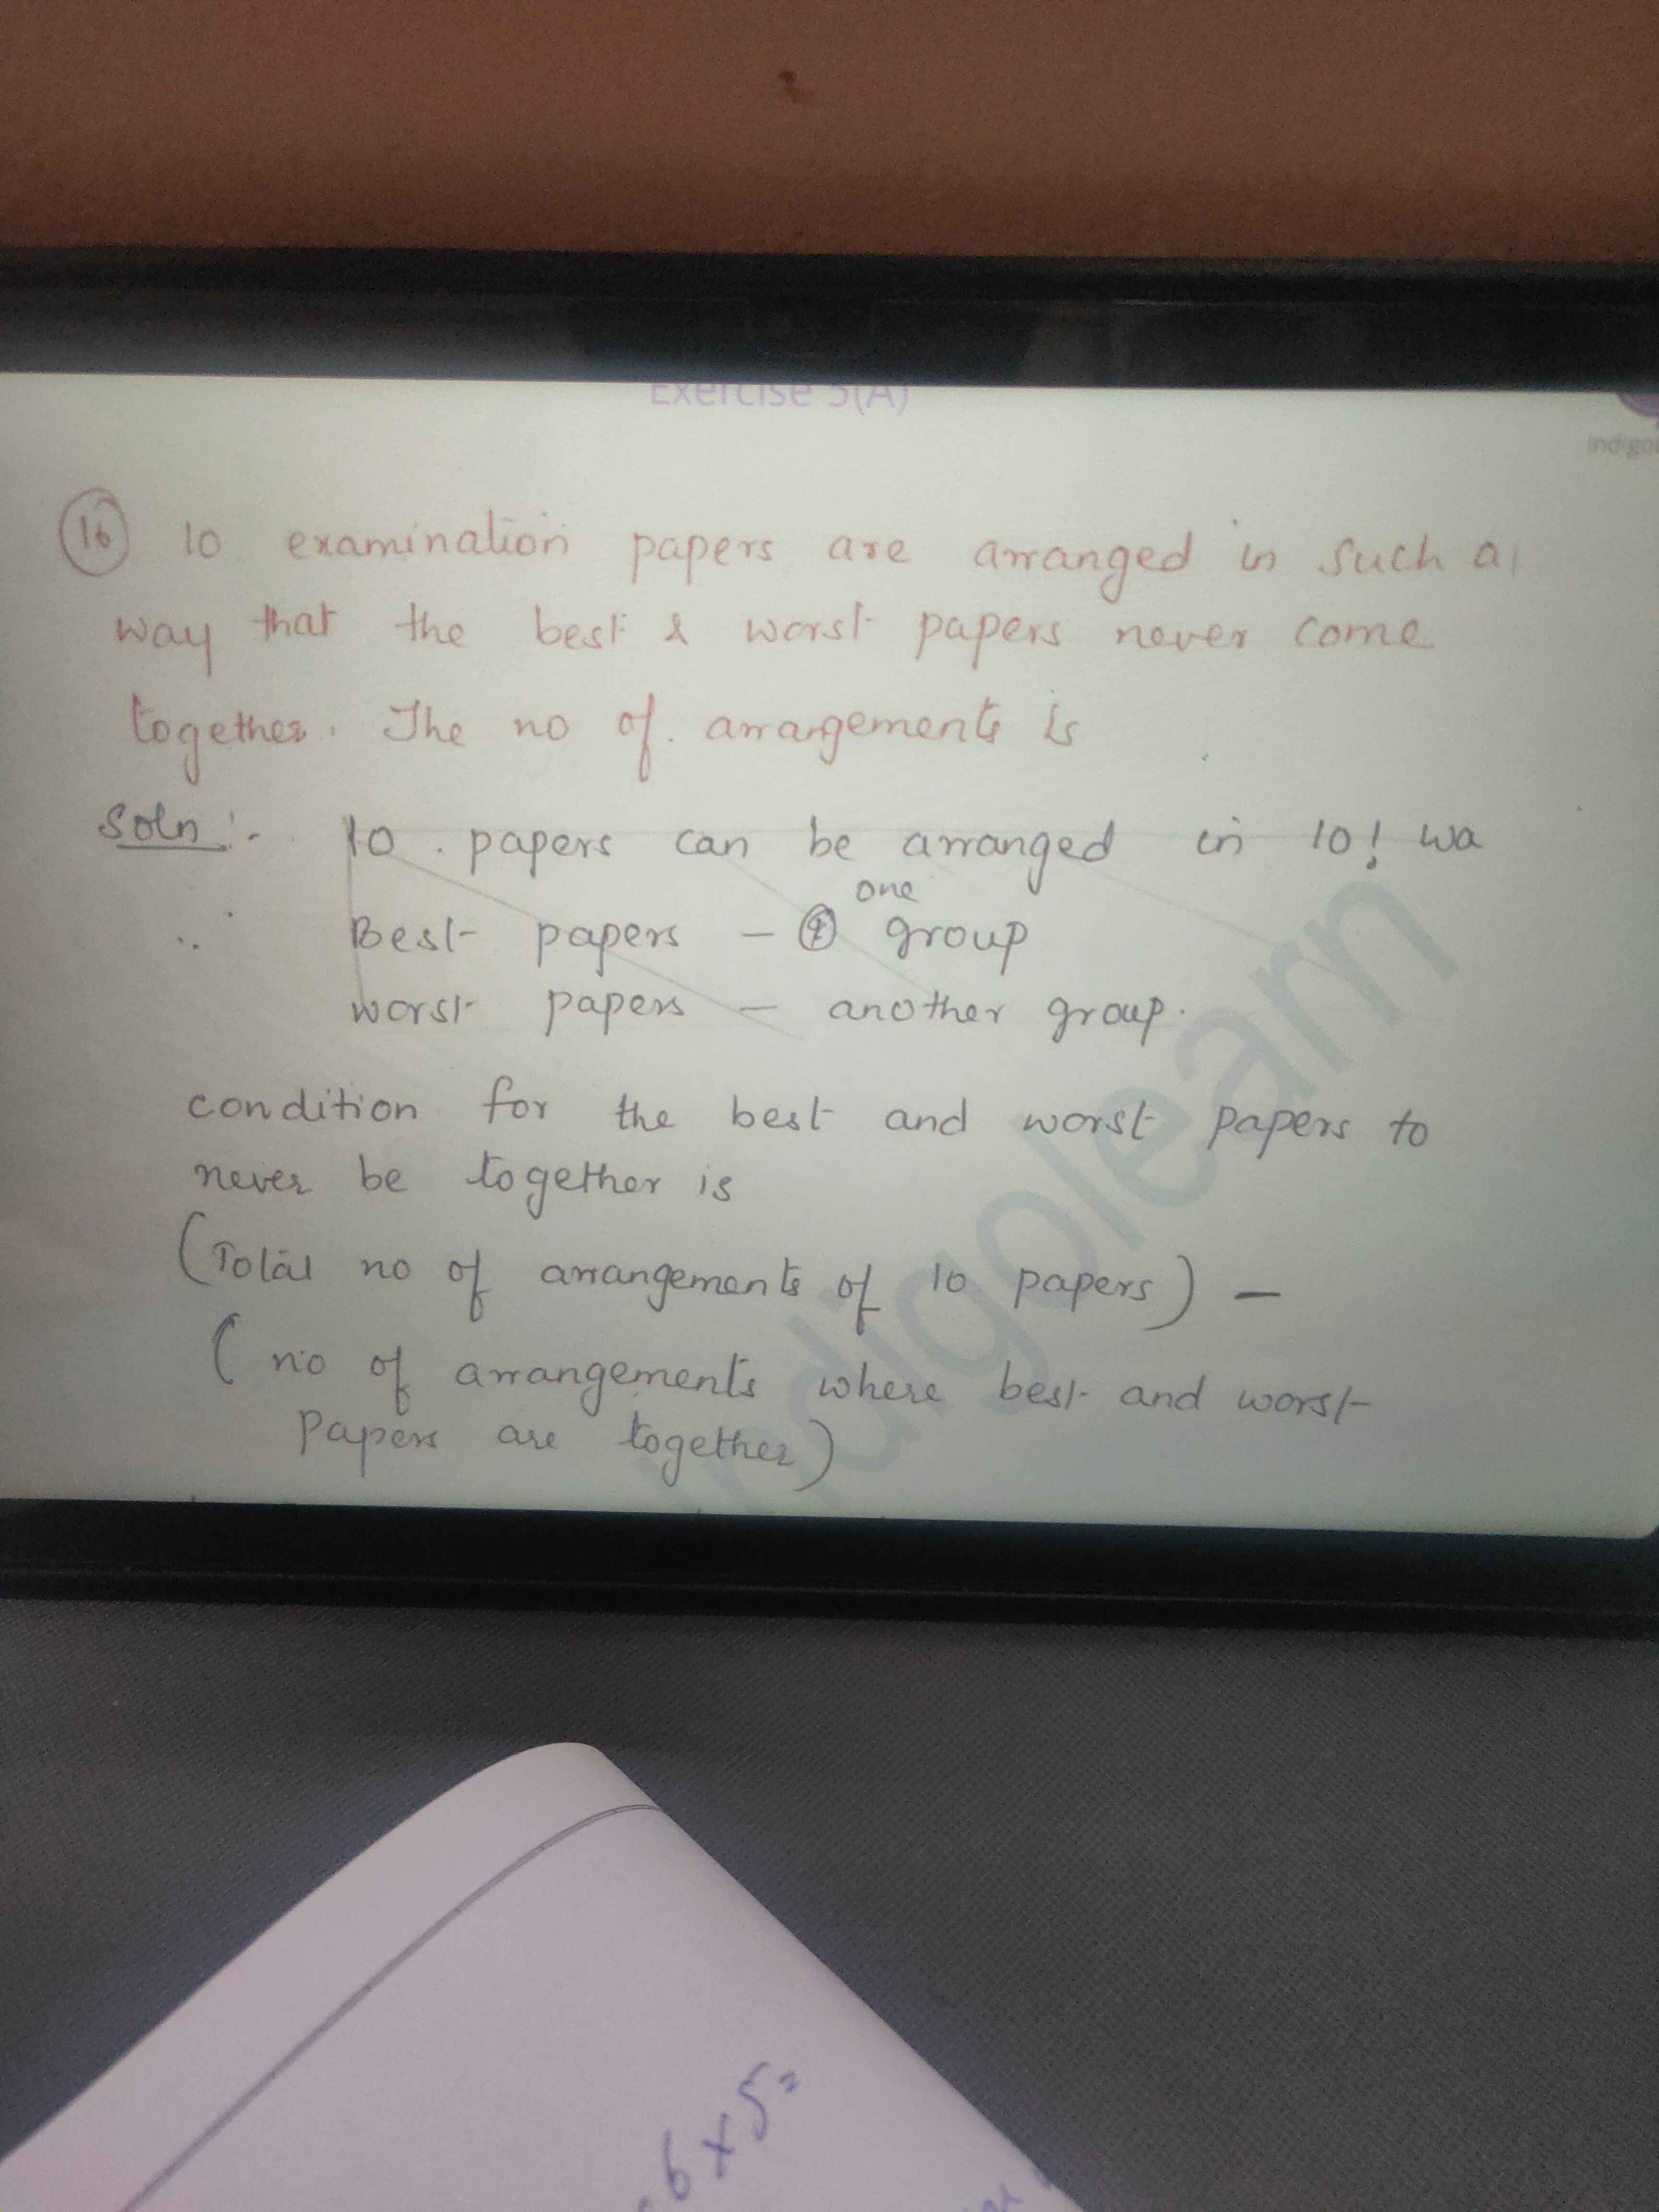 Exercise 5(A)
indigo
16 10 examination papers are arranged in such a
way that the best & worst papers never come
together. The no of arrangements is
Soln :- 10 papers can be arranged in 10! wa
one
Best papers - ① group
worst papers - another group.
condition for the best and worst papers to
never be together is
(Total no of arrangements of 10 papers) -
( no of arrangements where best and worst
papers are together)
indigolearn
6 x 5 =